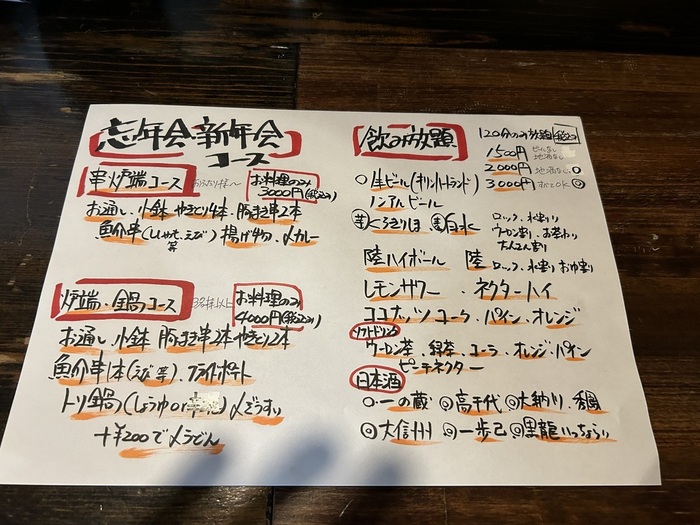 忘年会新年会
コース
串・炉端コース お料理のみ
3000円(税込)
お通し、小鉢、やきとり4本、豚まき串2本
魚介串(ししゃも、えび)揚げ物、〆カレー
等
炉端・鍋コース お料理のみ
4000円(税込)
お通し、小鉢、豚まき串2本、やきとり2本
魚介串1本(えび等)、フライポテト
トリ鍋(しょうゆor )〆ぞうすい
+¥200で〆うどん
飲み放題 120分のみ放題(税込)
1500円 ビールなし 地酒なし
2000円 地酒なし ○
3000円 ◎
○生ビール(キリンハートランド)
ノンアルビール
ロック、水割り
ウーロン割り、お茶わり
たんさん割り
陸ハイボール 陸 ロック、水割り、お湯わり
レモンサワー ・ネクターハイ
ココナッツコーラ・パイン・オレンジ
ソフトドリンク
ウーロン茶、緑茶、コーラ、オレンジ・パイン
ピーチネクター
日本酒
◎一の蔵 ◎高千代 ◎大納川
◎大信州 ◎一歩己 ◎黒龍いっちょらい